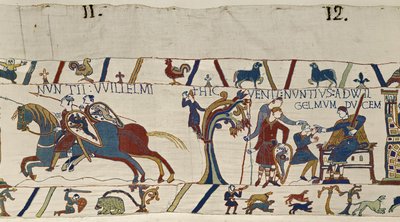 11. 12.
NVNTII : VVILLELMI
† HIC VENIT : NVNTIVS : AD WIL
GELMVM DVCEM